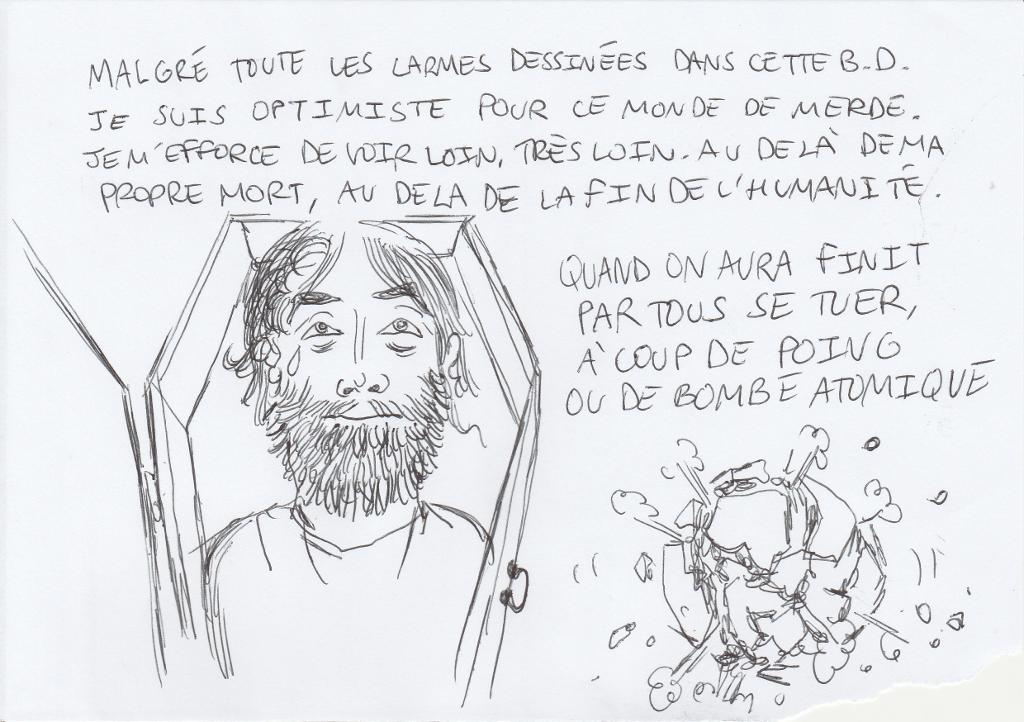 MALGRÉ TOUTE LES LARMES DESSINÉES DANS CETTE B.D.
JE SUIS OPTIMISTE POUR CE MONDE DE MERDE.
JE M'EFFORCE DE VOIR LOIN, TRÈS LOIN. AU DELÀ DE MA
PROPRE MORT, AU DELA DE LA FIN DE L'HUMANITÉ.
QUAND ON AURA FINIT
PAR TOUS SE TUER,
À COUP DE POING
OU DE BOMBE ATOMIQUE